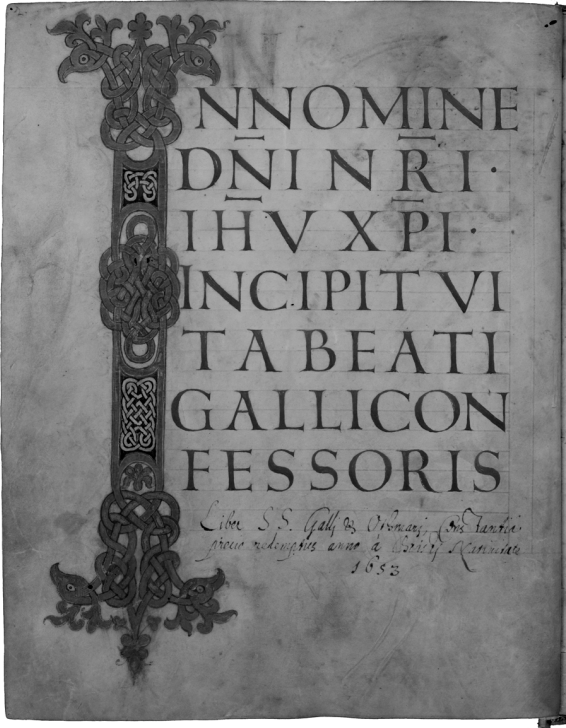 INNOMINE
DN̅I N R̅I ·
IH̅V XP̅I ·
INCIPIT VI
TA BEATI
GALLI CON
FESSORIS
Liber S. S. Gallj & Othmarj,
precio redemptus anno à
1653